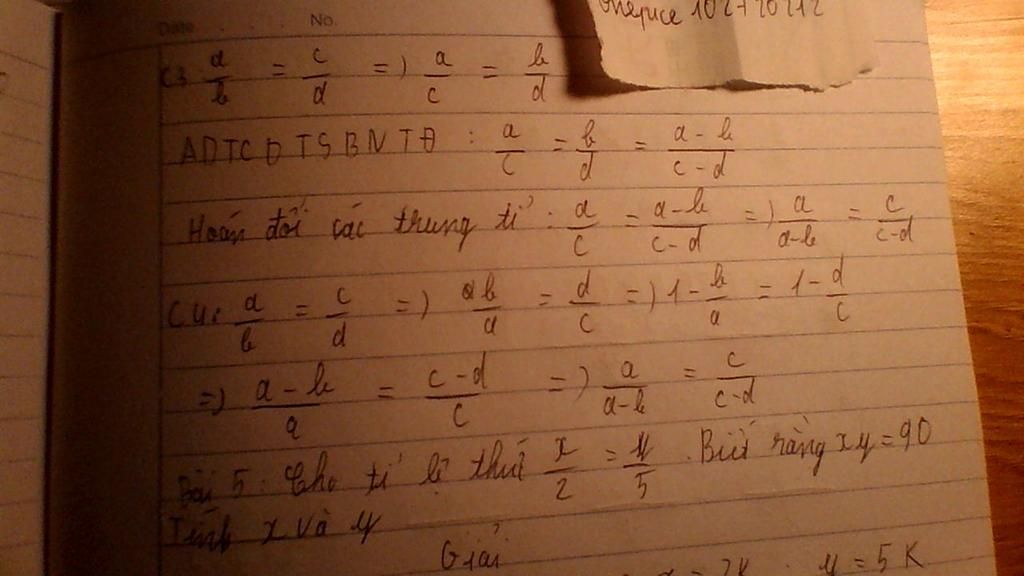 Date No.
onepice 102+10212
C3 a/b = c/d => a/c = b/d
ADTCDTSBNTĐ : a/c = b/d = (a-b)/(c-d)
Hoán đổi các trung tỉ : a/c = (a-b)/(c-d) => a/(a-b) = c/(c-d)
C4: a/b = c/d => b/a = d/c => 1 - b/a = 1 - d/c
=> (a-b)/a = (c-d)/c => a/(a-b) = c/(c-d)
Bài 5: Cho tỉ lệ thức x/2 = y/5 . Biết rằng xy = 90
Tính x và y
Giải
x = 2K y = 5K